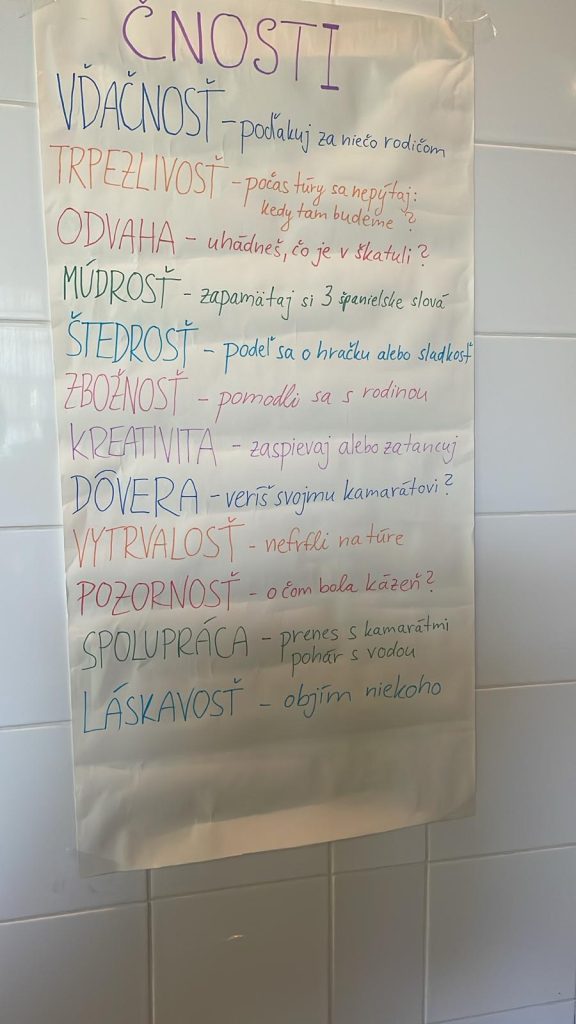 ČNOSTI
VĎAČNOSŤ – poďakuj za niečo rodičom
TRPEZLIVOSŤ – počas túry sa nepýtaj:
kedy tam budeme?
ODVAHA – uhádneš, čo je v škatuli?
MÚDROSŤ – zapamätaj si 3 španielske slová
ŠTEDROSŤ – podeľ sa o hračku alebo sladkosť
ZBOŽNOSŤ – pomodli sa s rodinou
KREATIVITA – zaspievaj alebo zatancuj
DÔVERA – veríš svojmu kamarátovi?
VYTRVALOSŤ – nefrfli na túre
POZORNOSŤ – o čom bola kázeň?
SPOLUPRÁCA – prenes s kamarátmi
pohár s vodou
LÁSKAVOSŤ – objím niekoho